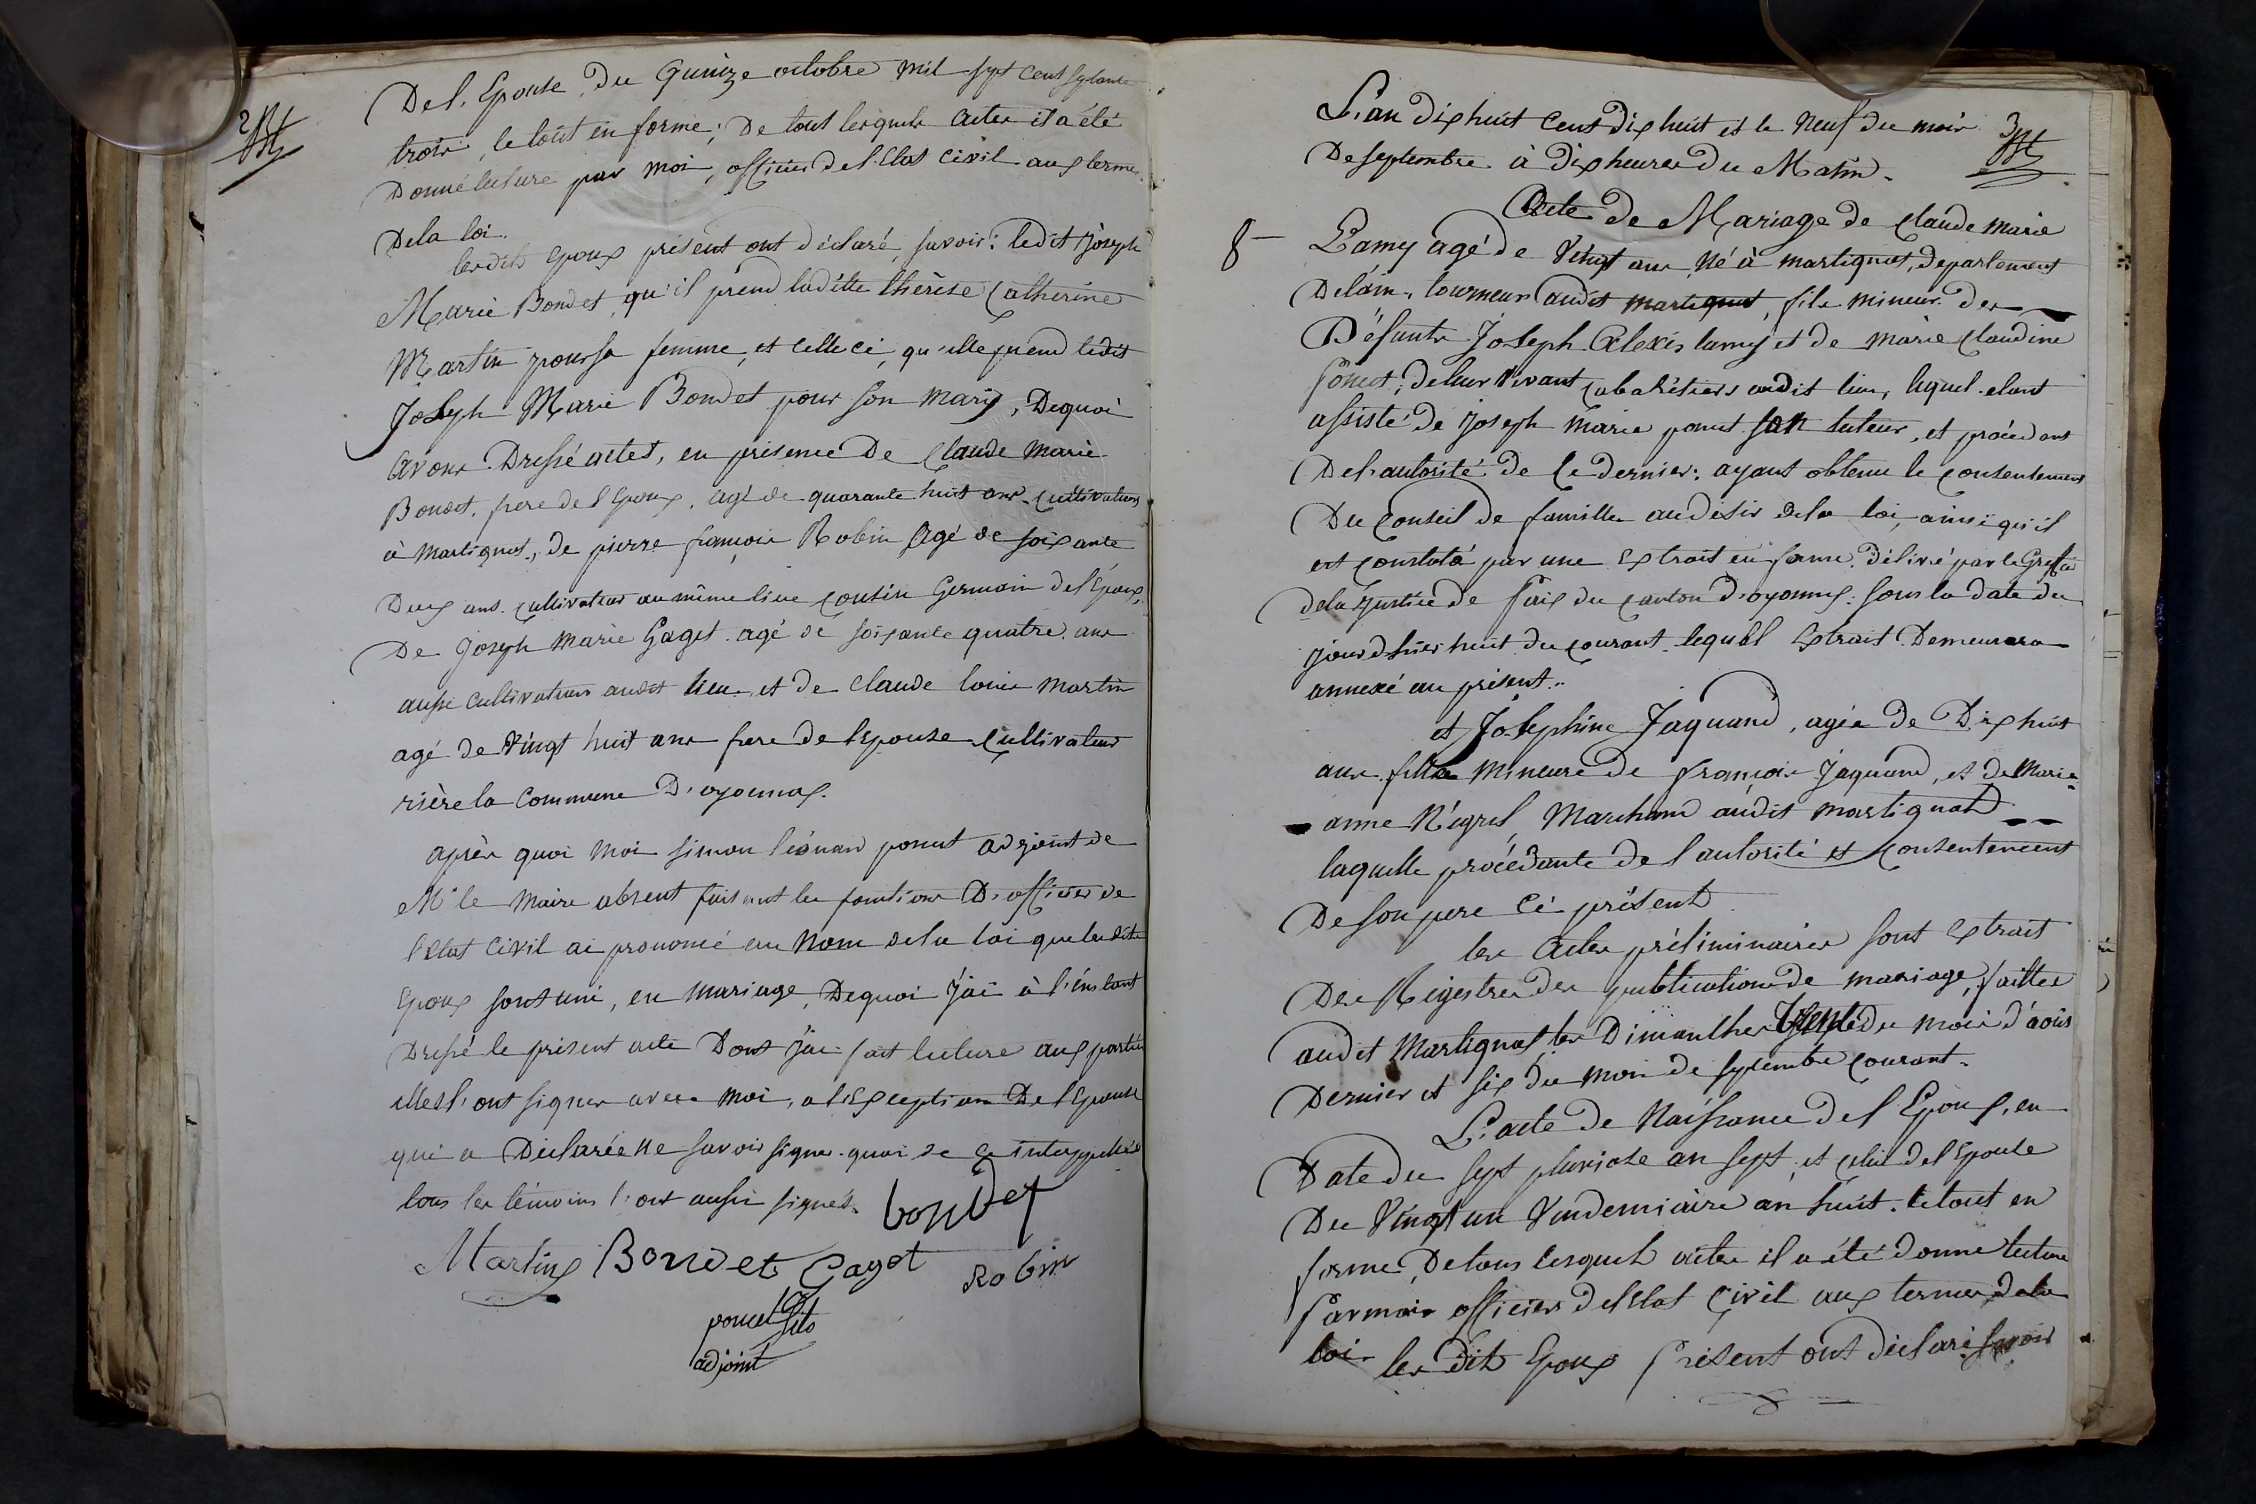 2
De l'Epouse, du Quinze octobre mil sept cent septante
trois, le tout en forme; De tout lesquels actes il a été
Donné lecture par moi, officier de l'Etat civil aux termes
De la loi.
lesdits Epoux présent ont déclaré, savoir: ledit Joseph
Marie Bondet, qu'il prend laditte thérèse Catherine
Martin pour sa femme, et celle ci, qu'elle prend ledit
Joseph Marie Bondet pour son mary, Dequoi
avons Dressé actes, en présence De Claude Marie
Bondet, frere de l'Epoux, agé de quarante huit ans, cultivateur
à Martignat, de pierre françois Robin agé de soixante
Deux ans cultivateur au même lieu cousin Germain de l'Epoux,
De Joseph Marie Gaget agé de soixante quatre ans
aussi cultivateur audit lieu, et de claude louis Martin
agé de vingt huit ans frere de l'Epouse cultivateur
rière la Commune D'oyonnax.
après quoi moi simon léonard ponut adjoint de
Mr le Maire absent faisant les fonctions D'officier de
l'Etat civil ai prononcé au Nom de la loi que lesdits
Epoux sont uni, en mariage, Dequoi J'ai à l'instant
Dressé le présent acte Dont J'ai fait lecture aux parties
elles l'ont signer avec moi, a l'Exception De l'Epouse
qui a Déclarée ne savoir signer quoi de ce interppellée
tous les témoins l'ont aussi signés.
bondet
Martin Bondet Gaget Robin
adjoint
3
L'an dix huit cent dix huit et le Neuf du mois
De septembre à dix heures du Matin.
8 Acte De Mariage de Claude Marie
Lamy agé de Vingt ans Né à martignat, departement
Delain, tourneur audit martignat, fils mineur des
Défunts Joseph Alexis lamy et de marie Claudine
Ponut, de leur vivant cabarétiers audit lieu, lequel etant
assisté de Joseph Marie ponut son tuteur, et procédant
De l'autorité de ce dernier: ayant obtenu le consentement
Du Conseil de famille au désir de la loi, ainsi qu'il
est constaté par une Extrait en forme délivré par le Greffier
de la Justice de Paix du canton D'oyonnax sous la date du
jour d'hier huit du courant lequel Extrait Demeurera
annexé au présent.
et Joséphine Jaquand, agée de Dix huit
ans fille Mineure de françois Jaquand, et de Marie
anne Négrel, Marchand audit martignat
laquelle procédante de l'autorité et consentement
De son pere ci présent
les actes préliminaires sont Extrait
Des Régistres des publications de mariage, faittes
audit Martignat les Dimanches trente du mois d'août
Dernier et six du mois de septembre courant.
L'acte de Naissance de l'Epoux, en
Date du sept pluviose an sept, et celui de l'Epouse
Du Vingt un Vindemiaire an huit. le tout en
forme, De tous lesquels actes il a été donné lecture
Par moi officier de l'Etat Civil aux termes de la
loi. les dits Epoux Présent ont déclaré savoir